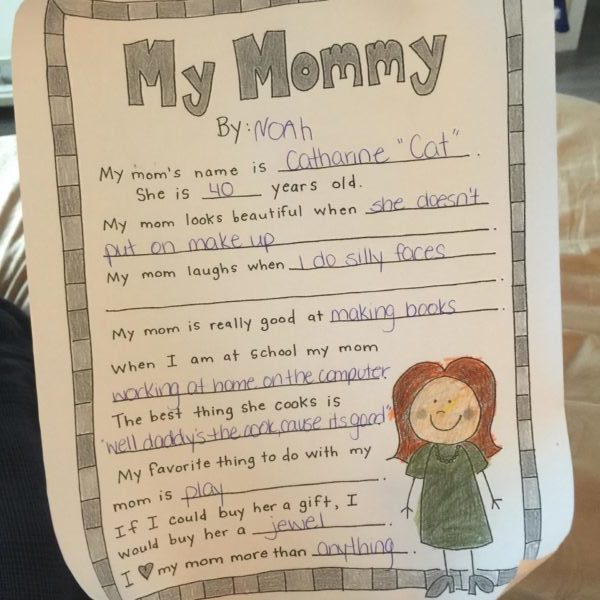 My Mommy
By: NOAh
My mom's name is Catharine "Cat".
She is 40 years old.
My mom looks beautiful when she doesn't
put on make up.
My mom laughs when I do silly faces
.
My mom is really good at making books.
When I am at school my mom
working at home on the computer.
The best thing she cooks is
"well daddy's the cook, cause its good".
My favorite thing to do with my
mom is play.
If I could buy her a gift, I
would buy her a jewel.
I ♥ my mom more than anything.